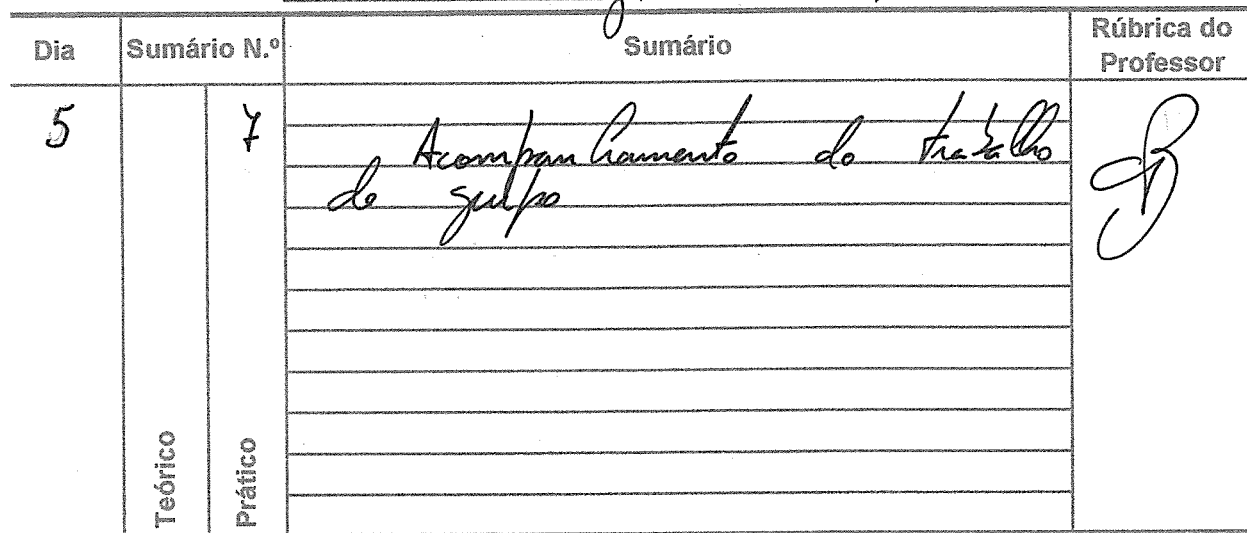 Dia Sumário N.º Sumário Rúbrica do Professor
5 7 Acompanhamento do trabalho
de grupo
Teórico
Prático